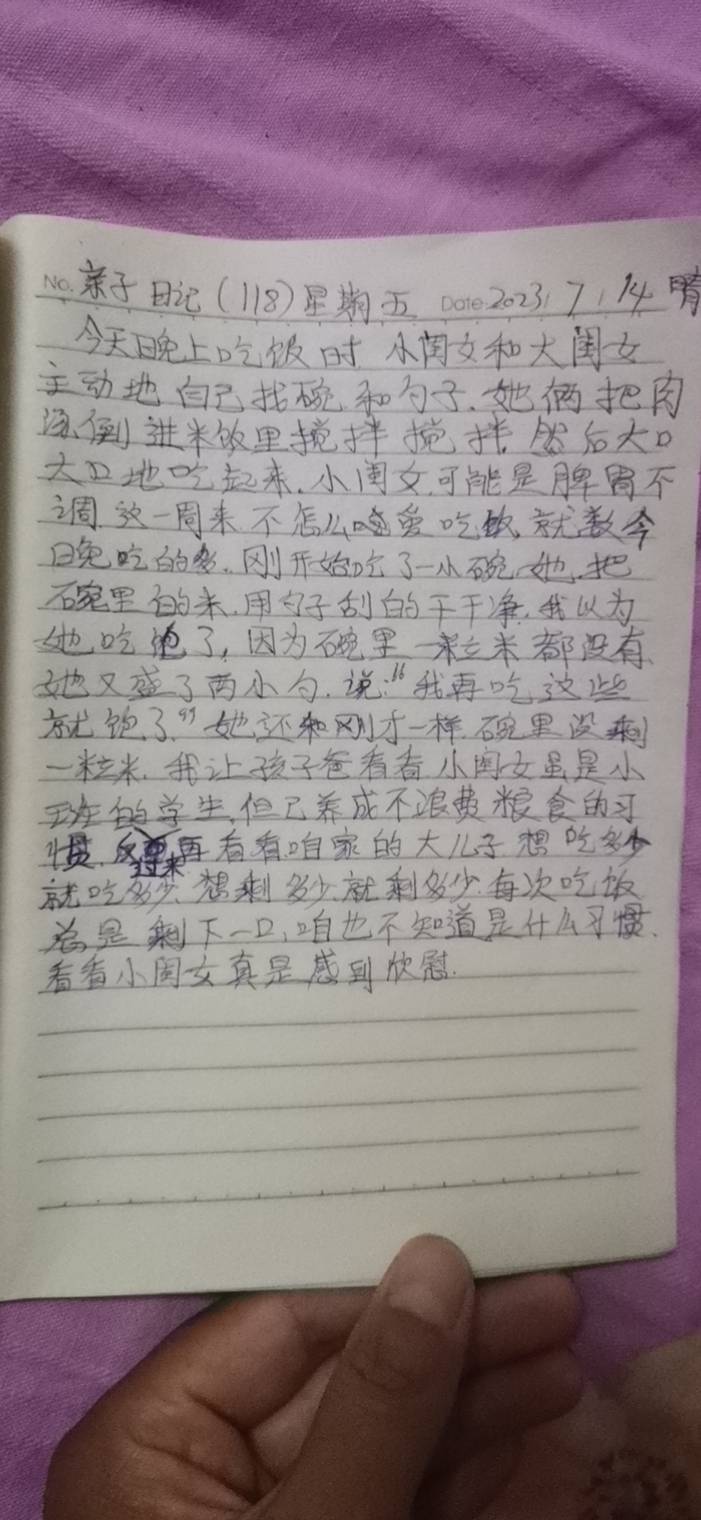 No. 亲子日记(118)星期五 Date 2023 7 14 晴
今天晚上吃饭时 小闺女和大闺女
主动地 自己找碗 和勺子. 她俩把肉
汤倒进米饭里搅拌搅拌 然后大口
大口地吃起来. 小闺女可能是脾胃不
调 这一周来 不怎么爱吃饭, 就数今
晚吃的多. 刚开始吃了一小碗 她 把
碗里的米 用勺子刮的干干净. 我以为
她吃饱了, 因为碗里一粒米都没有.
她又盛了两小勺. 说:“我再吃这些
就饱了”她还和刚才一样 碗里没剩
一粒米. 我让孩子爸看看 小闺女虽是小
班的学生, 但已养成不浪费粮食的习
惯. 反过来再看看咱家的大儿子 想吃多少
就吃多少. 想剩多少 就剩多少 每次吃饭
总是剩下一口, 咱也不知道是什么习惯.
看看小闺女真是感到欣慰.